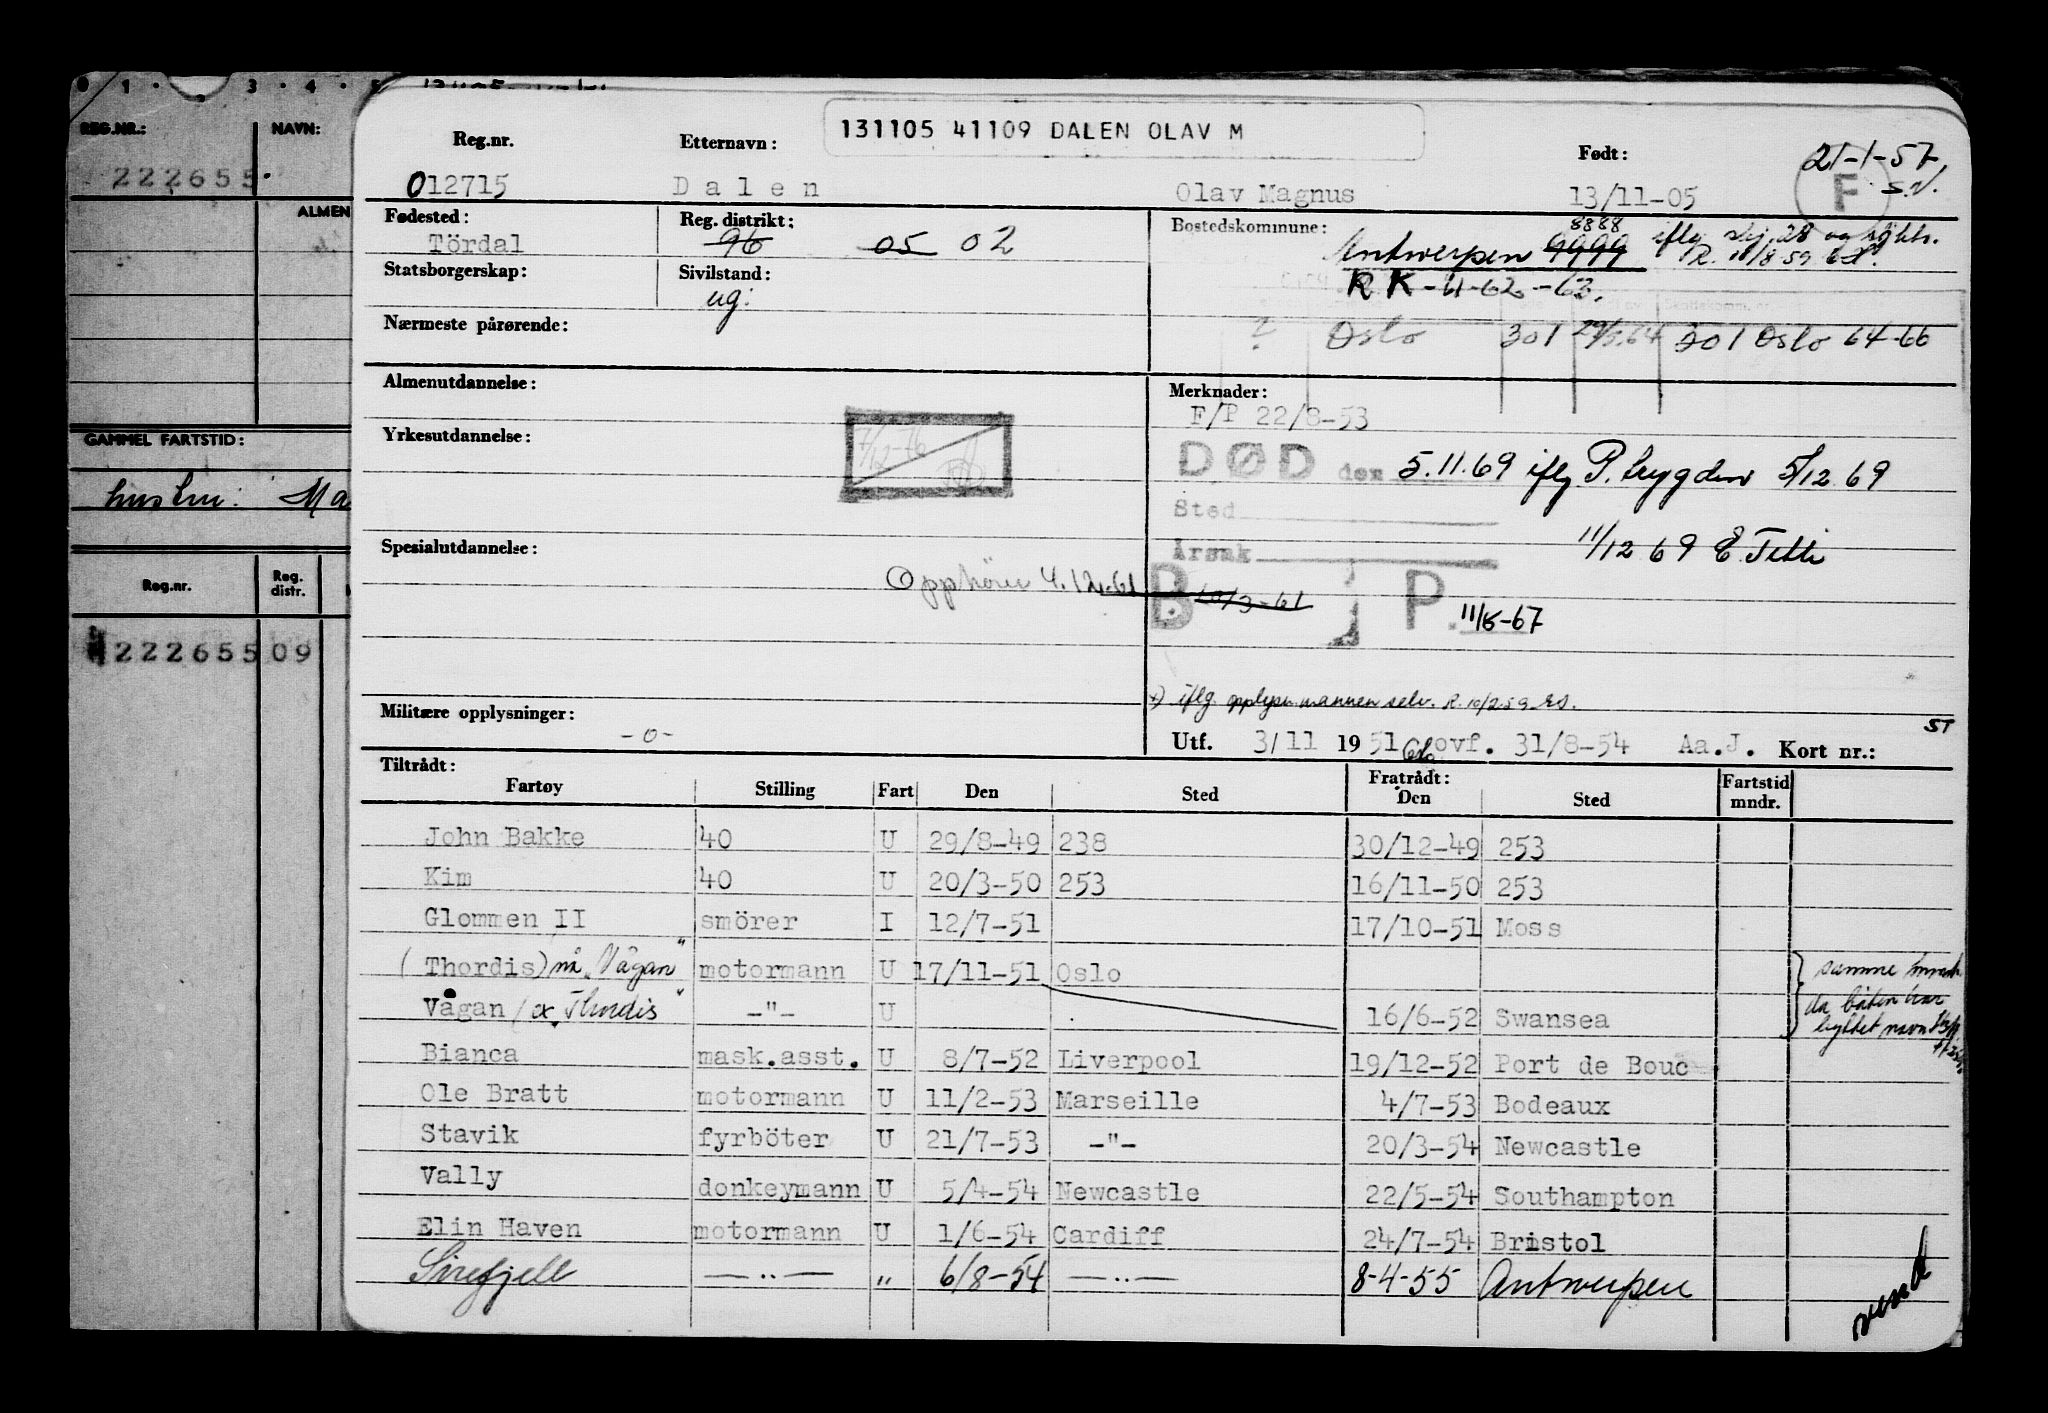 1 · 2 · 3 · 4 · 5
REG.NR.: NAVN:
222655
ALMEN
GAMMEL FARTSTID:
Ma
Reg.nr. Reg. distr.
222655 09
131105 41109 DALEN OLAV M
Reg.nr. Etternavn: Født: 21-1-57.
012715 Dalen Olav Magnus 13/11-05 F S.V.
Fødested: Reg. distrikt: Bostedskommune: 8888
Tördal 96 05 02 Antwerpen 9999 iflg. skj. 28 og
R. 11/8 59
Statsborgerskap: Sivilstand: RK-11-62-63.
ug:
Nærmeste pårørende: ? Oslo 301 29/5.64 301 Oslo 64-66
Almenutdannelse: Merknader:
F/P 22/8-53
Yrkesutdannelse: 7/12-76
DØD den 5.11.69 iflg P.bygden 5/12 69
Sted
Årsak 11/12 69
Spesialutdannelse:
Opphörer 4.12.61 B 10/3-61 P. 11/8-67
x) iflg. opplysn. mannen selv. R. 10/2 59
Militære opplysninger: ST
-o- Utf. 3/11 1951 Oslo ovf. 31/8-54 Aa.J. Kort nr.:
Tiltrådt: Fratrådt:
Fartøy Stilling Fart Den Sted Den Sted Fartstid mndr.
John Bakke 40 U 29/8-49 238 30/12-49 253
Kim 40 U 20/3-50 253 16/11-50 253
Glommen II smörer I 12/7-51 17/10-51 Moss
(Thordis) nå "Vågan" motormann U 17/11-51 Oslo samme
Vågan (ex "Thordis" -"- U 16/6-52 Swansea da båten har
byttet navn
Bianca mask.asst. U 8/7-52 Liverpool 19/12-52 Port de Bouc
Ole Bratt motormann U 11/2-53 Marseille 4/7-53 Bodeaux
Stavik fyrböter U 21/7-53 -"- 20/3-54 Newcastle
Vally donkeymann U 5/4-54 Newcastle 22/5-54 Southampton
Elin Haven motormann U 1/6-54 Cardiff 24/7-54 Bristol
Sirefjell —"— " 6/8-54 —"— 8-4-55 Antwerpen
vend